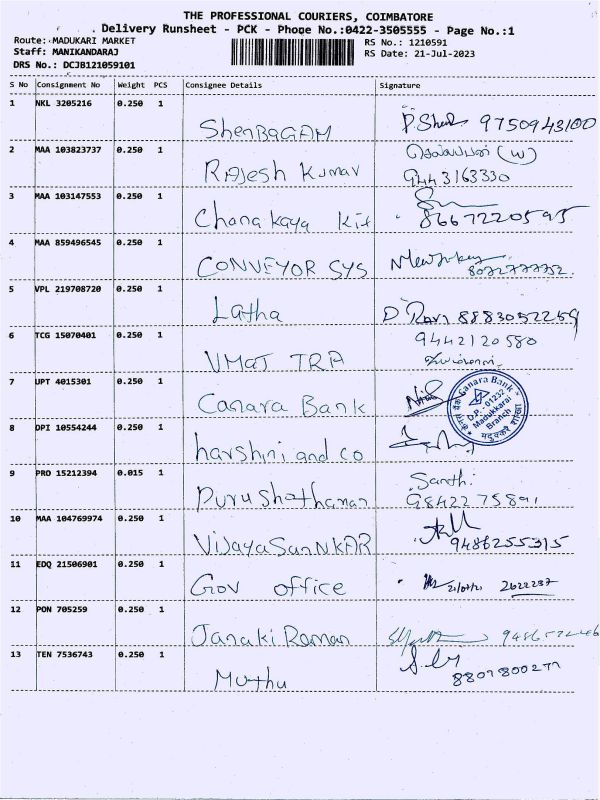 THE PROFESSIONAL COURIERS, COIMBATORE
Delivery Runsheet - PCK - Phone No.:0422-3505555 - Page No.:1
Route: MADUKARI MARKET
Staff: MANIKANDARAJ
DRS No.: DCJB121059101
RS No.: 1210591
RS Date: 21-Jul-2023
S No Consignment No Weight PCS Consignee Details Signature
1 NKL 3205216 0.250 1
ShenBaGAM 9750943100
2 MAA 103823737 0.250 1
Rajesh Kumar (w)
9443163330
3 MAA 103147553 0.250 1
Chanakaya Kit 8667220595
4 MAA 859496545 0.250 1
CONVEYOR SYS
5 VPL 219708720 0.250 1
Latha D Ravi 8883052259
6 TCG 15070401 0.250 1
VMaT TRA 9442120580
7 UPT 4015301 0.250 1
Canara Bank
Canara Bank
D.P.- 01232
Madukkarai
Branch
8 DPI 10554244 0.250 1
harshini and co
9 PRO 15212394 0.015 1
Purushothaman Santhi
98422 75891
10 MAA 104769974 0.250 1
VijayaSanNKAR 9486255315
11 EDQ 21506901 0.250 1
Gov office 2622237
12 PON 705259 0.250 1
Janaki Raman
13 TEN 7536743 0.250 1
Muthu